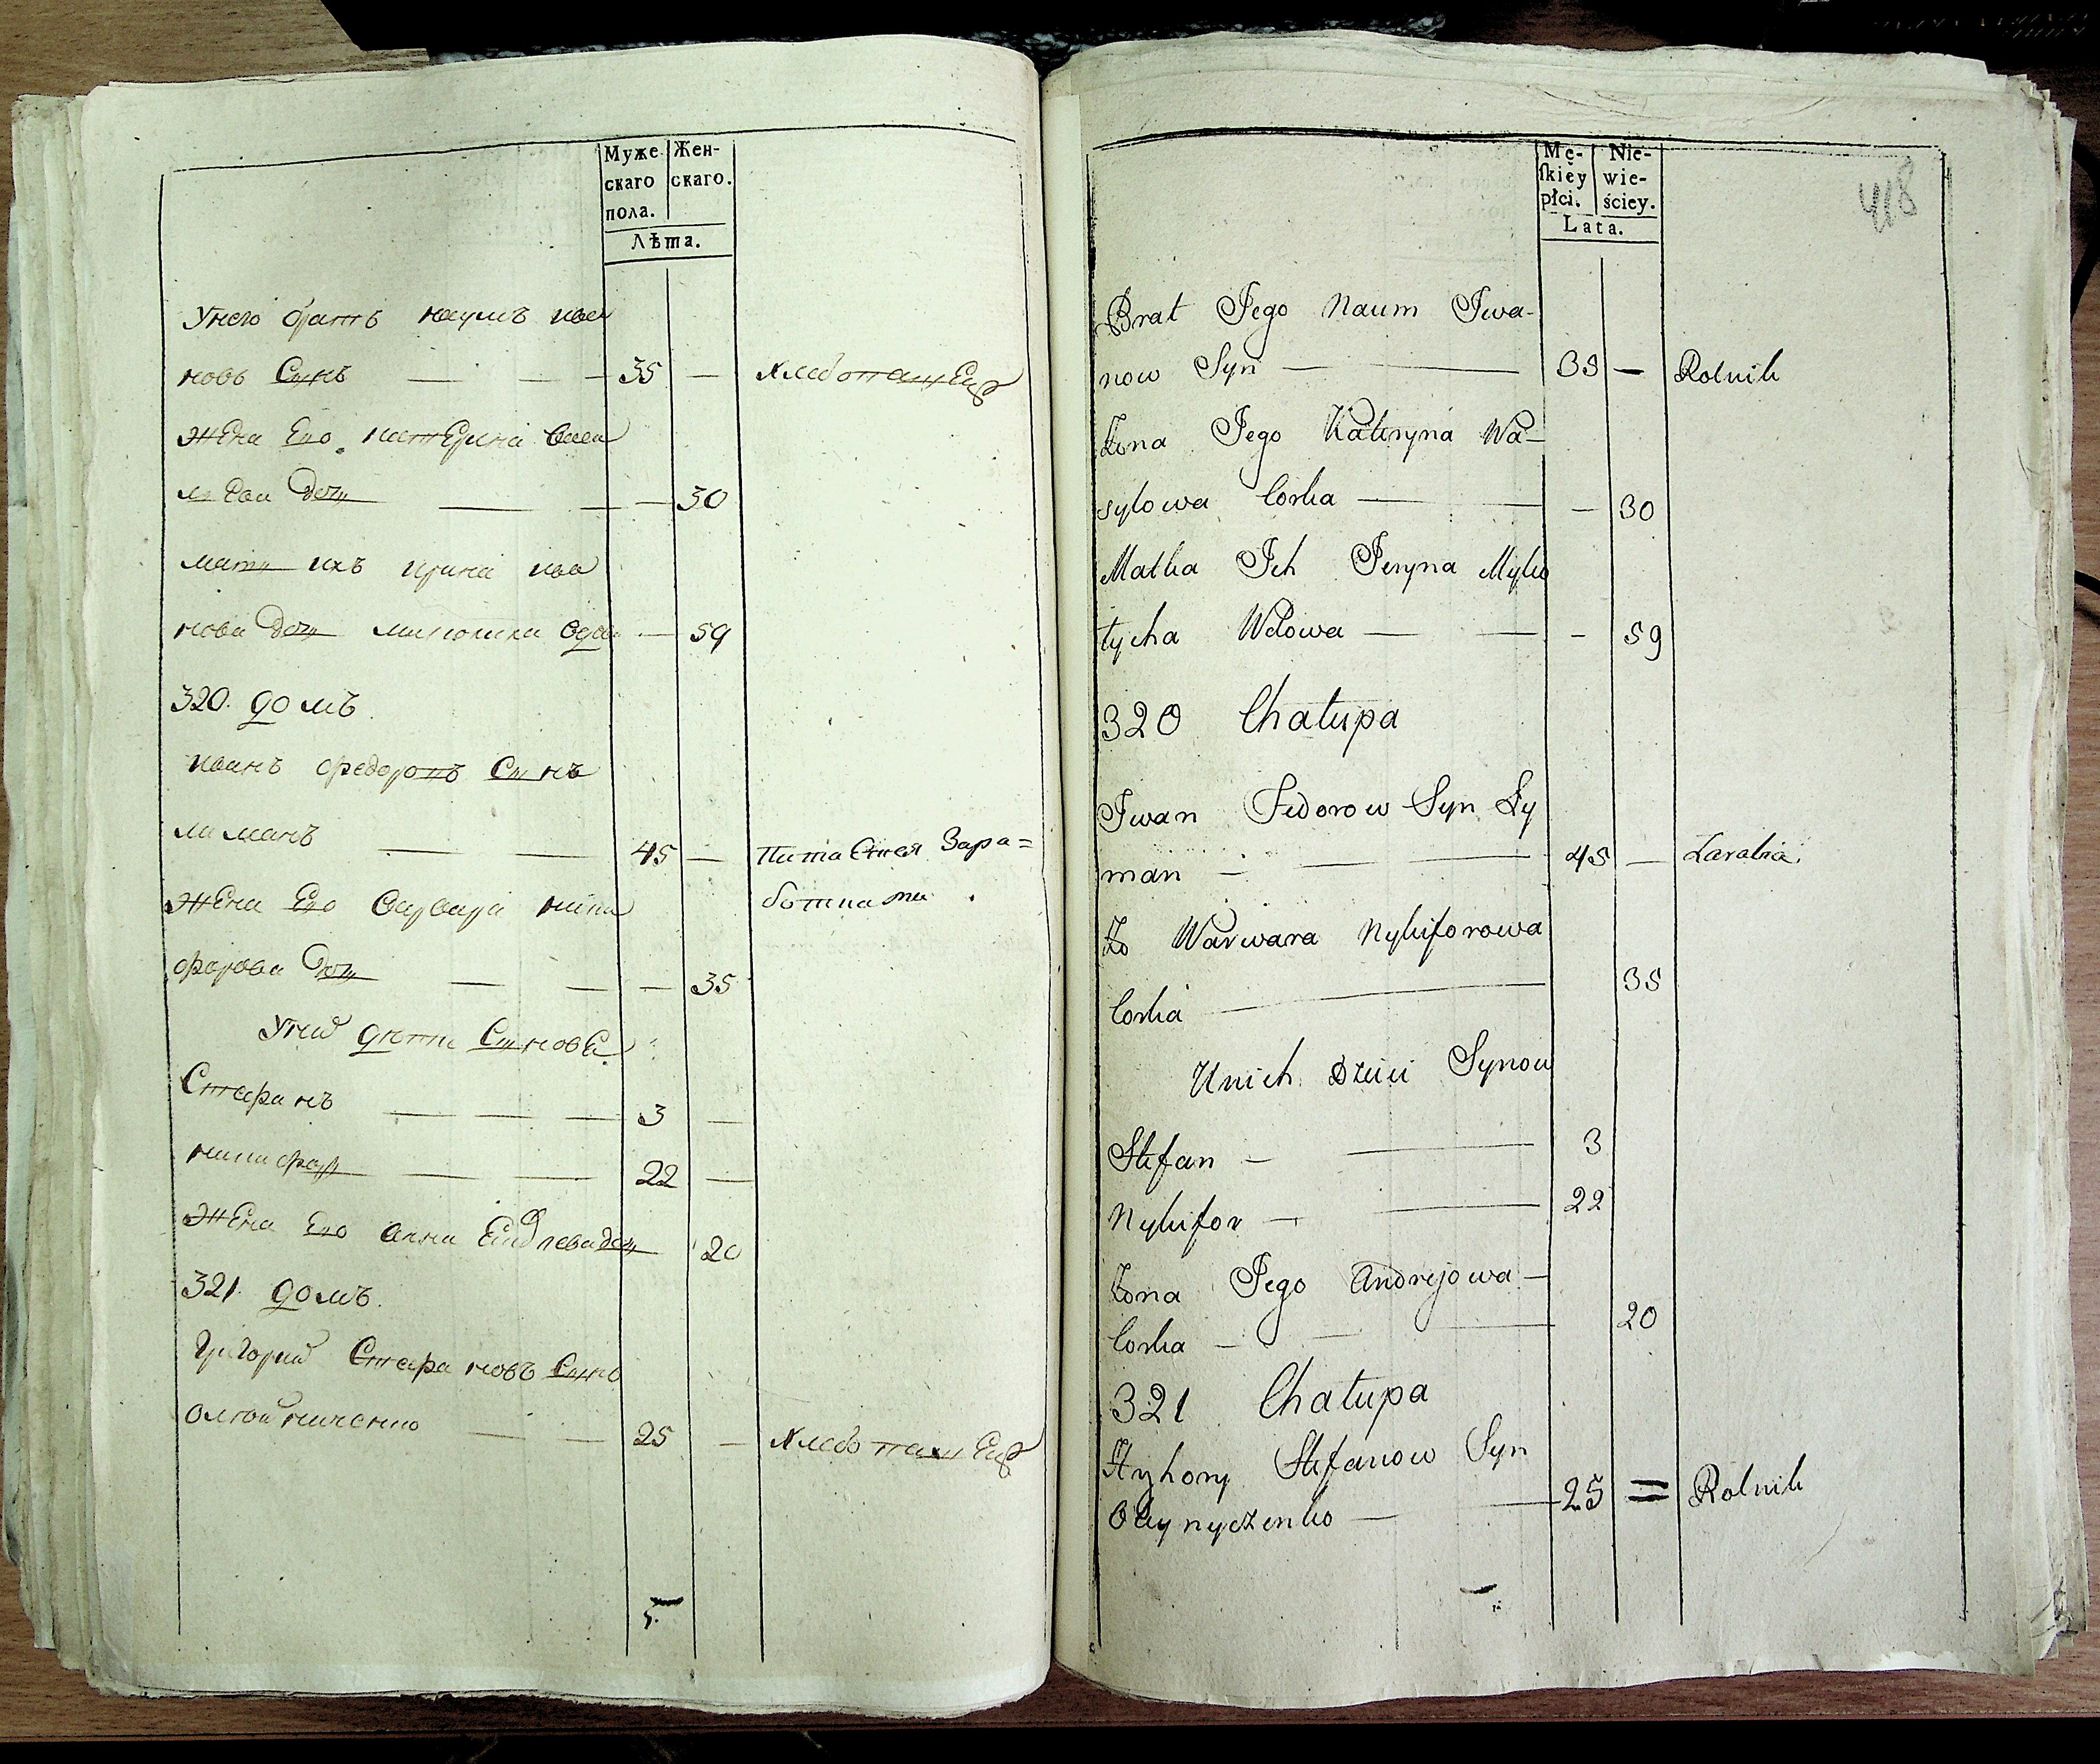 Муже Жен-
скаго скаго.
пола.
Лѣта.
Унего братъ наумъ ива
новъ Сынъ — 35 — хлебопашЕцъ
ЖЕна Его катЕрина васи
лЕва дочь — 30
мать ихъ ирина ива
нова дочь микитиха вдова — 59
320. домъ
иванъ федоровъ Сынъ
лиманъ — 45 — ПитаЕтся Зара=
ботками
ЖЕна Его варвара ники
форова дочь — 35
Уних дѣти СыновЕ
Стефанъ — 3 —
никифор — 22 —
ЖЕна Его анна дочь 20
321. домъ.
Григорий Стефановъ Сынъ
олейниченко — 25 — хлебопашЕцъ
Mę- Nie-
ſkiey wie-
płci. ściey.
Lata.
418
Brat Jego Naum Iwa-
now Syn — 35 — Rolnik
Żona Jego Kateryna Wa-
sylowa Corka — 30
Matka Ich Iryna Myki
tycha Wdowa — 59
320 Chałupa
Iwan Fedorow Syn Ły
man — 45 — Zarabia.
Żo Warwara Nykiforowa
Corka — 35
Unich Dzieci Synow
Stefan — 3
Nykifor — 22
Żona Jego Andrejowa —
Corka — 20
321 Chałupa
Hryhory Stefanow Syn
Oleynyczenko — 25 = Rolnik